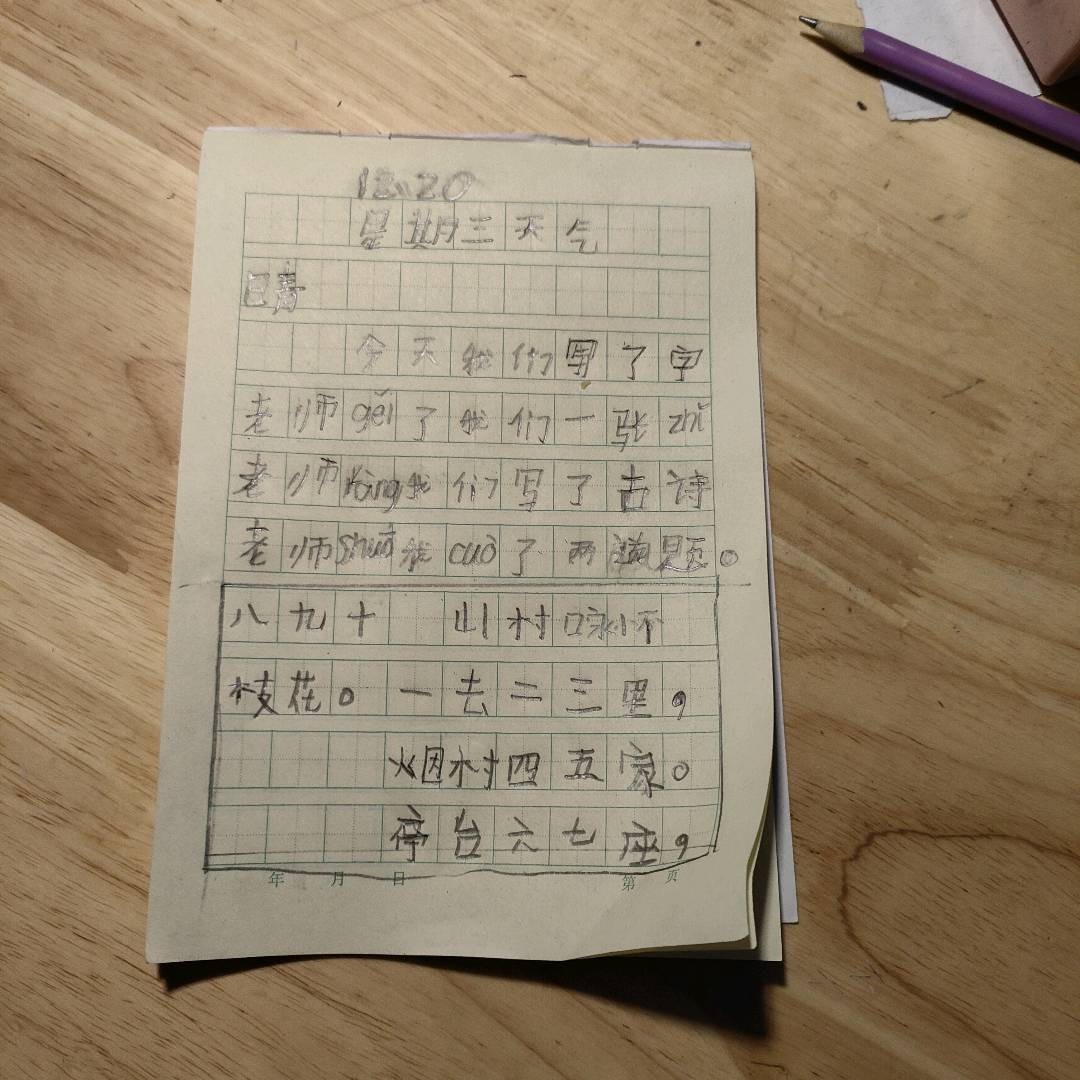 12、20
星期三天气
晴
今天我们写了字
老师gěi了我们一张zhǐ
老师ràng我们写了古诗
老师shuō我cuò了两道题。
八九十 山村咏怀
枝花。一去二三里，
烟村四五家。
停台六七座，
年 月 日 第 页